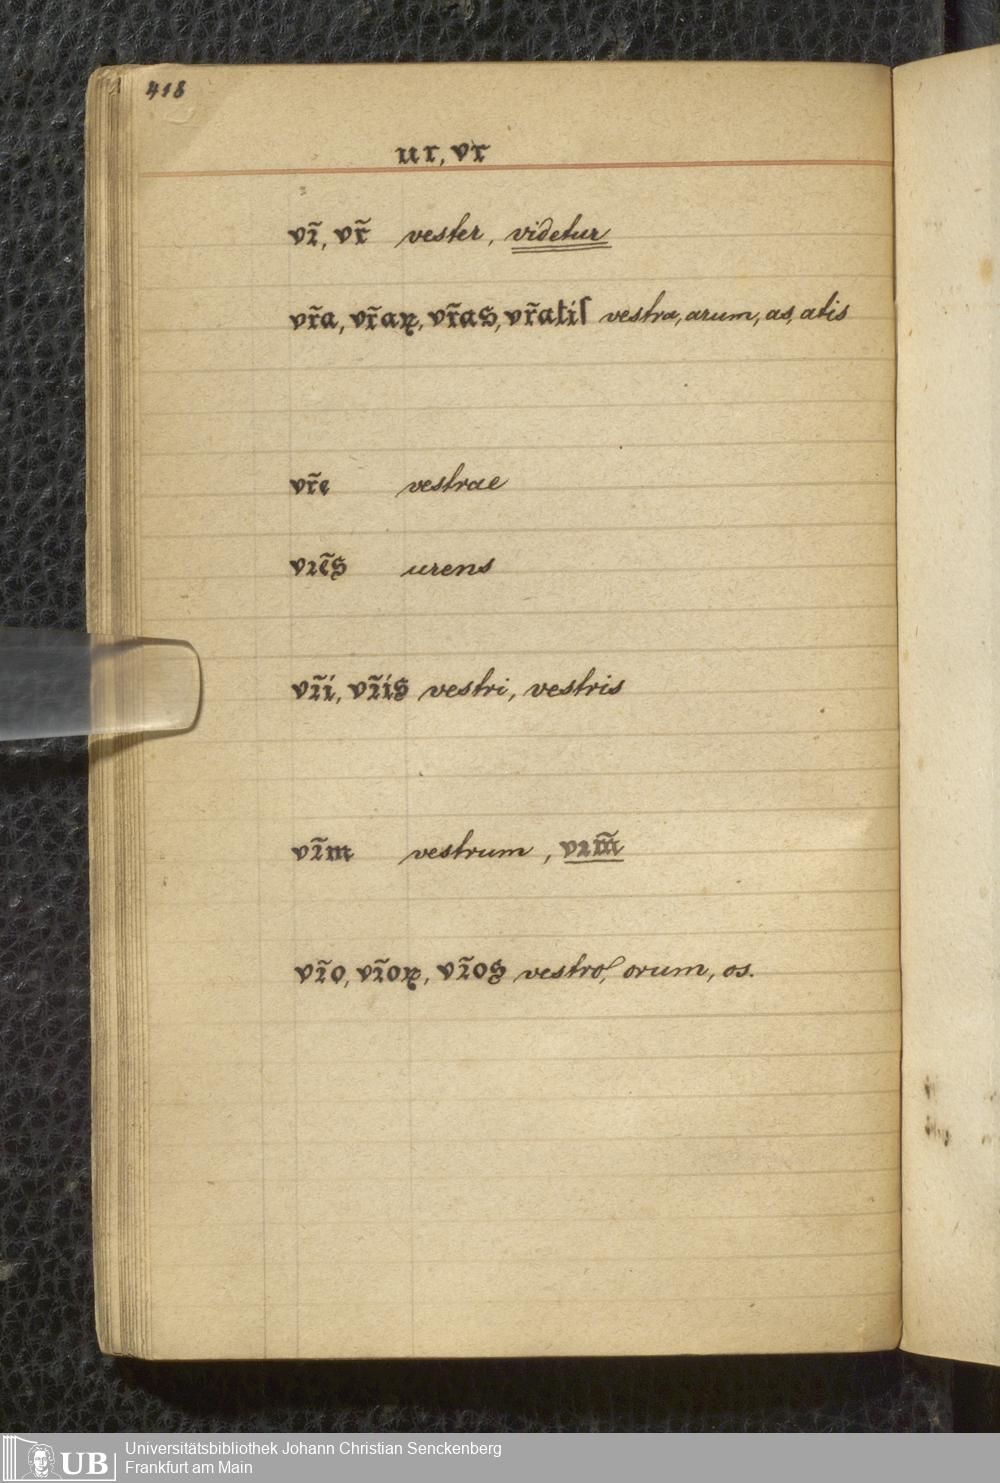 418
ur, vr
vꝛ̃, vr̃ vester, videtur
vr̃a, vr̃aꝝ, vr̃as, vr̃atiſ vestra, arum, as, atis
vr̃e vestrae
vꝛẽs urens
vꝛ̃i, vꝛ̃is vestri, vestris
vꝛ̃m vestrum, vꝛm̃
vꝛ̃o, vꝛ̃oꝝ, vꝛ̃os vestro, orum, os.
UB
Universitätsbibliothek Johann Christian Senckenberg
Frankfurt am Main